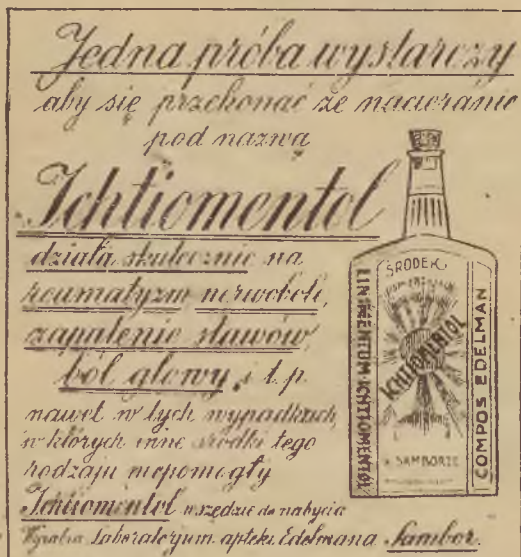 Jedna próba wystarczy
aby się przekonać że nacieranie
pod nazwą
Ichtiomentol
działa skutecznie na
reumatyzm nerwobole,
zapalenie stawów,
ból głowy, i t.p.
nawet w tych wypadkach
w których inne środki tego
rodzaju niepomogły
Ichtiomentol wszędzie do nabycia
Wyrabia Laboratorjum apteki Edelmana Sambor.
ŚRODEK
ICHTIOMENTOL
SAMBORZE
LINIMENTUM ICHTIOMENTOL
COMPOS EDELMAN